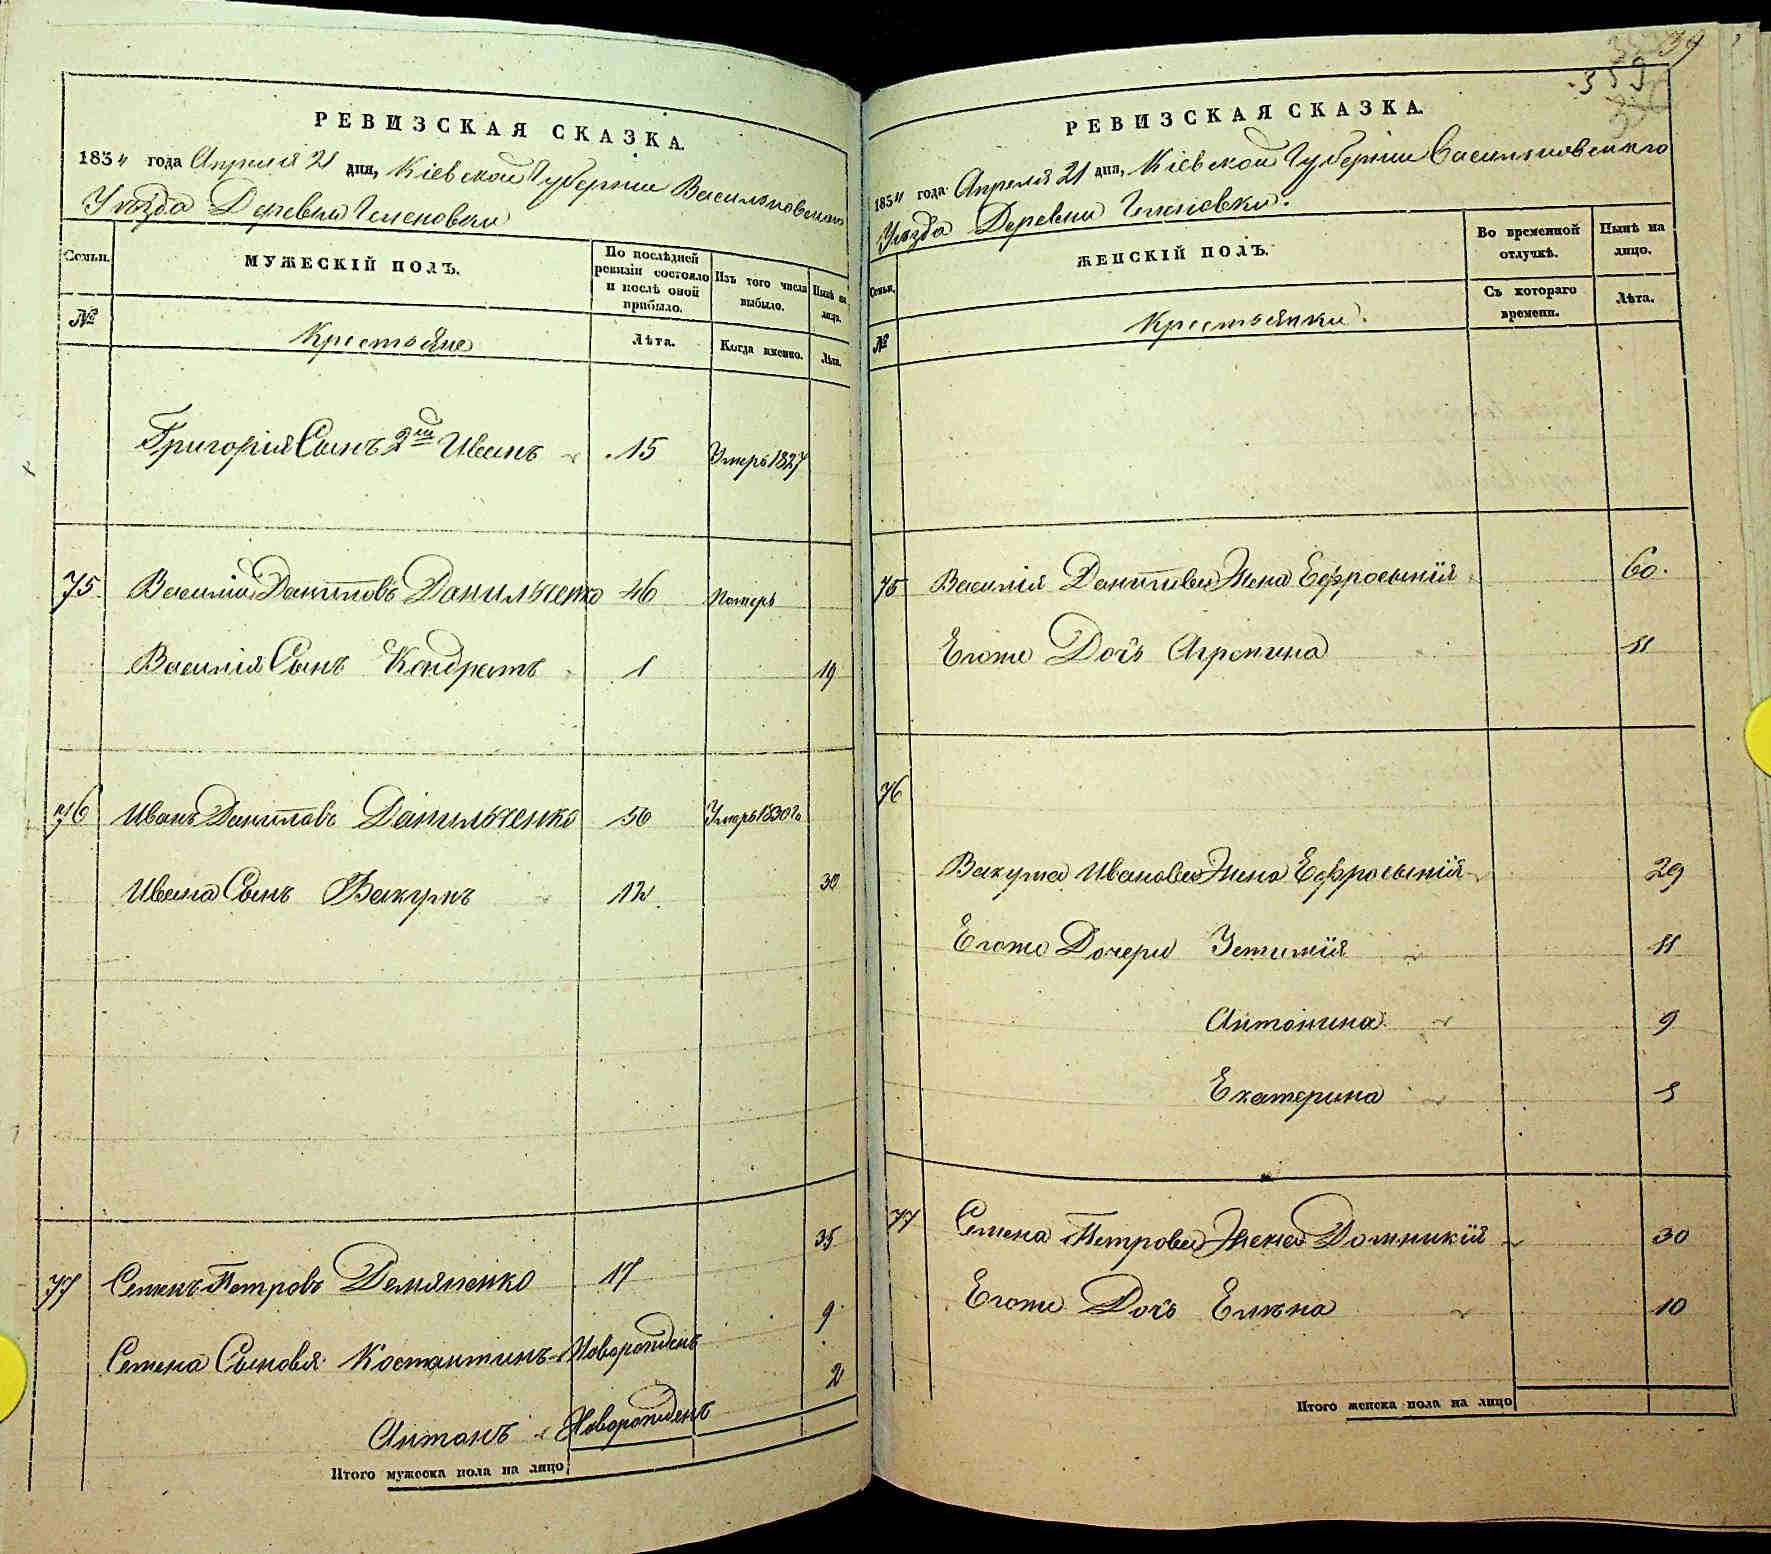 РЕВИЗСКАЯ СКАЗКА.
1834 года Апреля 21 дня, Кіевской Губерніи Васильковскаго
Уѣзда Деревни
Семьи.
МУЖЕСКІЙ ПОЛЪ.
По послѣдней ревизіи состояло и послѣ оной прибыло.
Изъ того числа выбыло.
Нынѣ на лицо.
№
Крестьяне
Лѣта.
Когда именно.
Лѣта.
Григорія Сынъ 2й Иванъ 15 Умеръ 1827
75 Василій Даниловъ Данильченко 46 Померъ
Василія Сынъ Кондратъ 1 19
76 Иванъ Даниловъ Данильченко 50 Умеръ 1830 го
Ивана Сынъ Вакулъ 12 30
77 Семенъ Петровъ Демяненко 17 35
Семена Сыновья Костантинъ Новорожденъ 9
Антонъ Новорожденъ 2
Итого мужеска пола на лицо
39
359
РЕВИЗСКАЯ СКАЗКА.
1834 года Апреля 21 дня, Кіевской Губерніи Васильковскаго
Уѣзда Деревни
Семьи.
ЖЕНСКІЙ ПОЛЪ.
Во временной отлучкѣ.
Нынѣ на лицо.
№
Крестьянки.
Съ котораго времени.
Лѣта.
75 Василія Данилова Жена Ефросынія 60.
Егоже Дочь Агрепина 11
76
Вакула Иванова Жена Ефросынія 29
Егоже Дочери Устимія 11
Антонина 9
Екатерина 5
77 Семена Петрова Жена Домникія 30
Егоже Дочь Елѣна 10
Итого женска пола на лицо